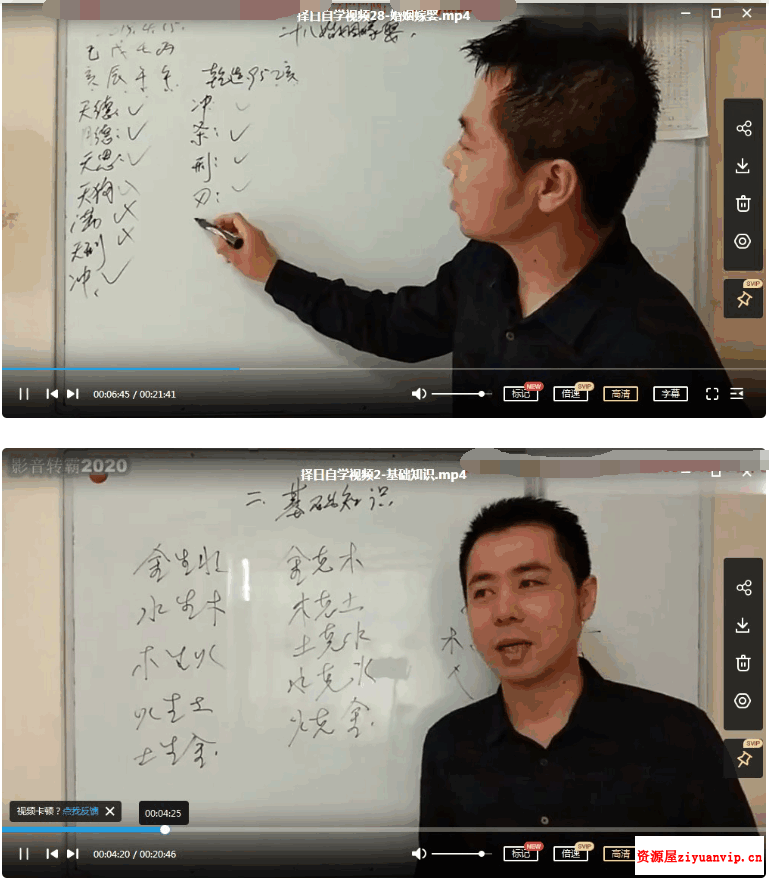 择日自学视频28-婚姻嫁娶.mp4
二十八婚姻嫁娶.
2019.4.15.
己戊壬丙
亥辰午
乾造95乙亥
天德:✓
月德:✓
天恩:✓
天狗
满✗
天刑✗
冲:✓
冲✓
杀:✓
刑:✓
刃:✓
SVIP
00:06:45 / 00:21:41
标记
NEW
倍速
SVIP
高清
字幕
影音转霸2020
择日自学视频2-基础知识.mp4
二、基础知识.
金生水
金克木
水生木
木克土
木生火
土克水
水克火
火生土
火克金.
土生金.
木
SVIP
视频卡顿?点我反馈
00:04:25
00:04:20 / 00:20:46
标记
NEW
倍速
SVIP
高清
资源屋ziyuanvip.cn